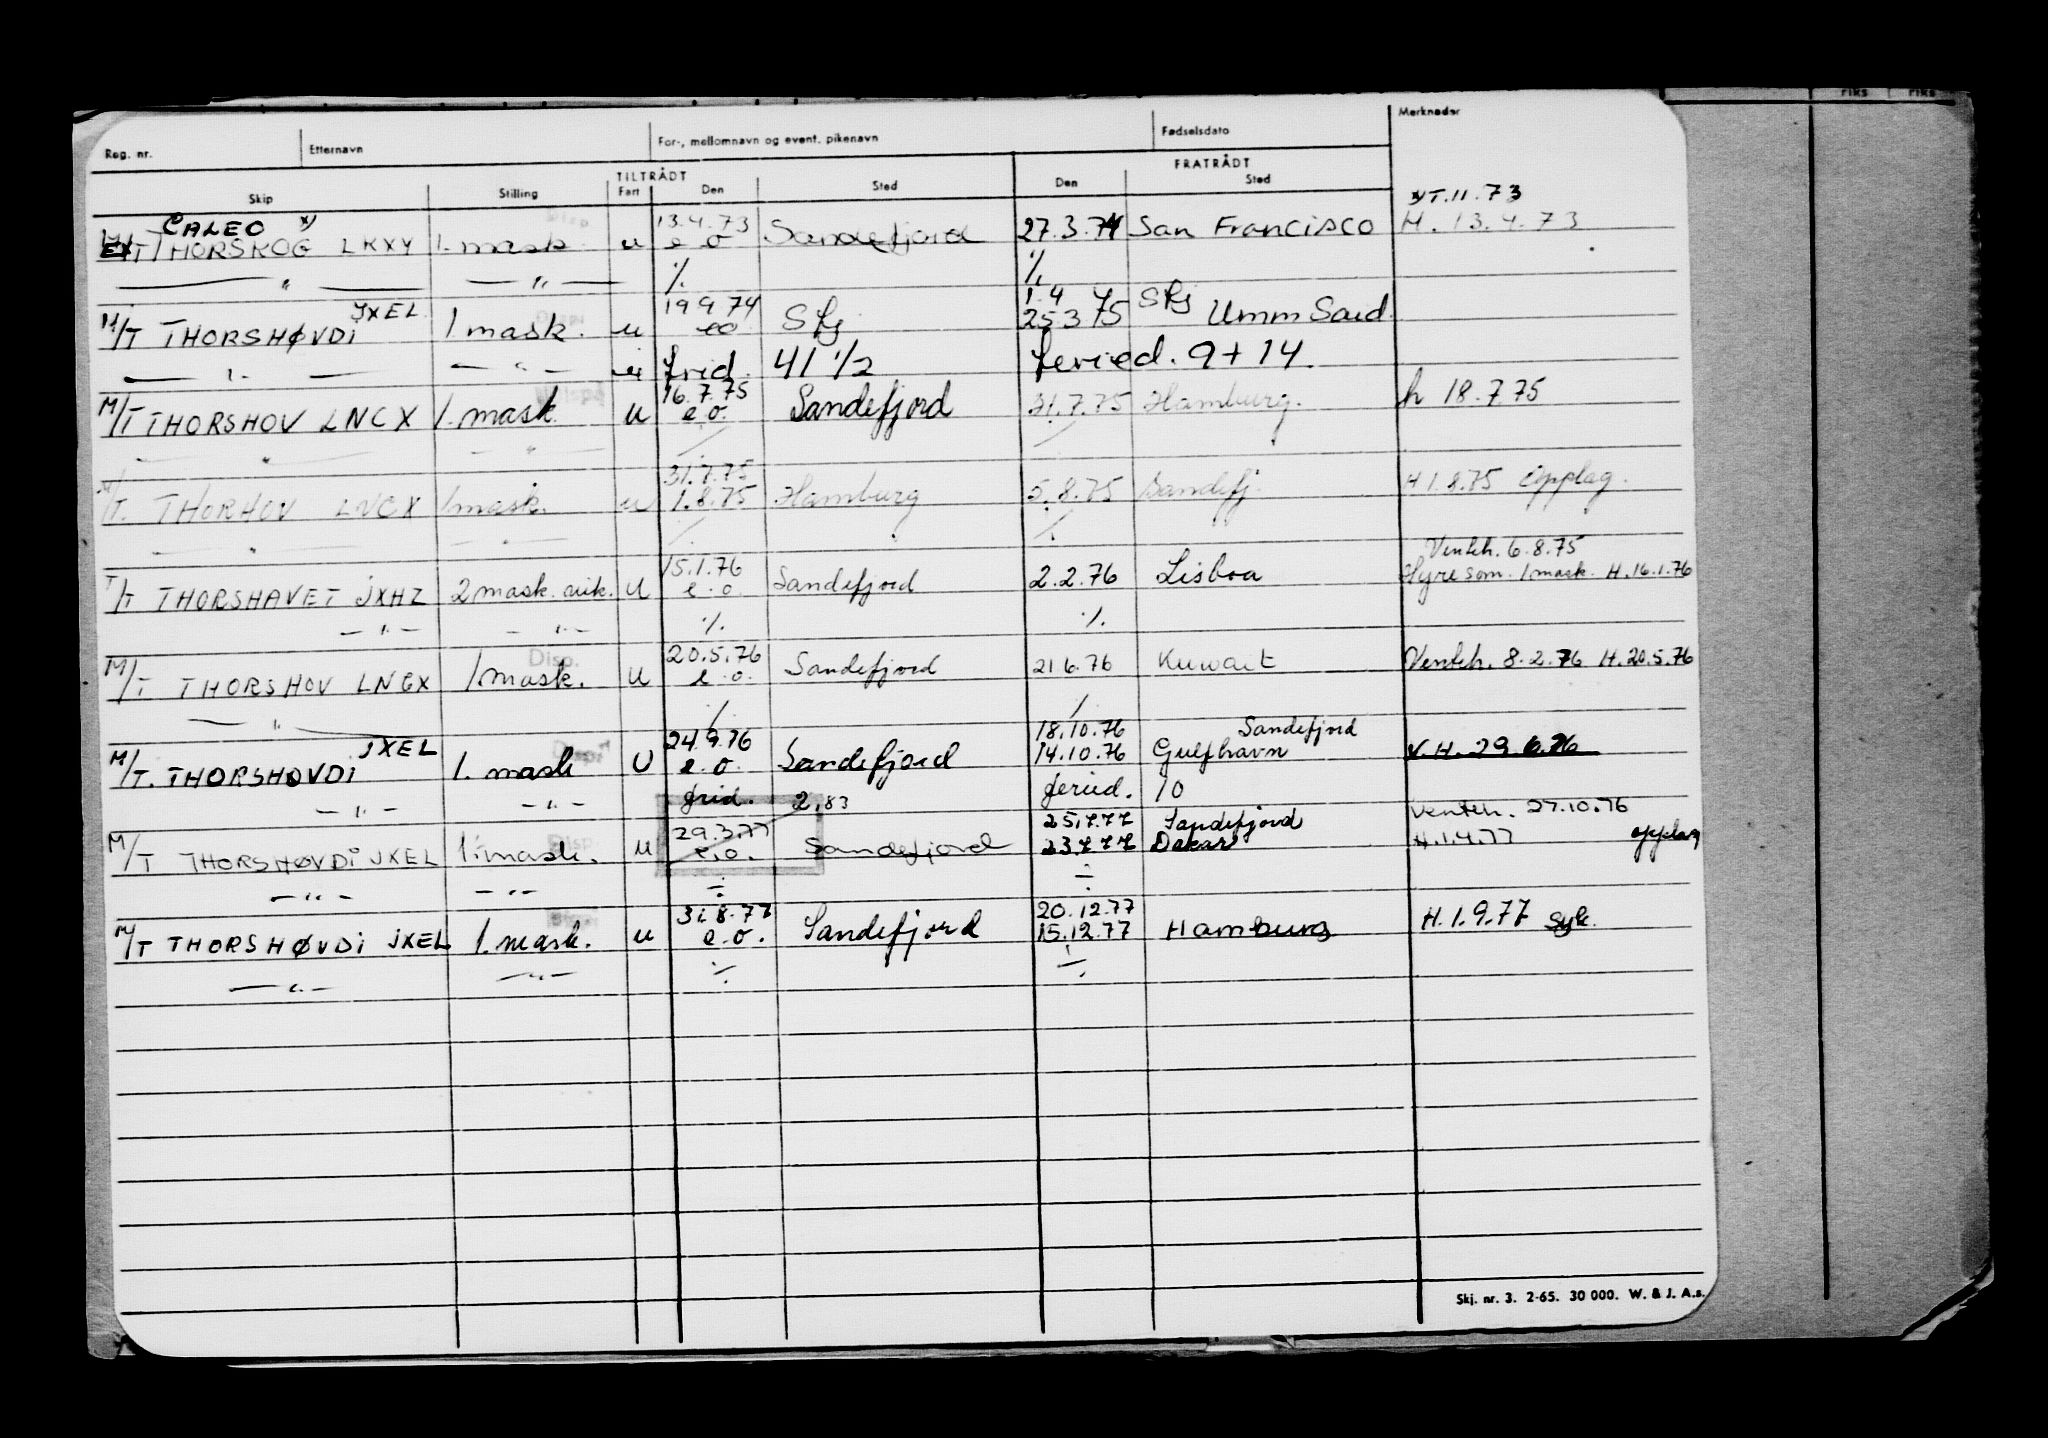 Reg. nr. Etternavn For-, mellomnavn og event. pikenavn Fødselsdato Merknader
TILTRÅDT FRATRÅDT
Skip Stilling Fart Den Sted Den Sted
CALEO x) 13.4.73 x) T. 11. 73
EX M/T THORSKOG LKXY 1. mask u e o Sandefjord 27.3.74 San Francisco H. 13.4.73
— " — — " — % %
M/T THORSHØVDI JXEL 1 mask. u 19 9 74 eo Sfj 1.4 Sfj 25 3 75 Umm Said
— " — — " — u frid. 41 1/2 feried. 9 + 14.
M/T THORSHOV LNCX 1. mask u 16.7.75 e.o. Sandefjord 31.7.75 Hamburg. h 18.7.75
— " — — " —
M/T. THORHOV LNCX 1 mask. u 31.7.75 1.8.75 Hamburg 5.8.75 Sandefj. H 1.8.75 Opplag.
— " — — " — % %
Venteh. 6.8.75
T/T THORSHAVET JXHZ 2 mask. vik. U 15.1.76 e.o. Sandefjord 2.2.76 Lisboa Hyre som 1 mask. H. 16.1.76
— " — — " — % %
M/T THORSHOV LNCX 1 mask. Disp. U 20.5.76 e.o. Sandefjord 21 6.76 Kuwait Venteh. 8.2.76 H. 20.5.76
— " — % %
M/T. THORSHØVDI JXEL 1. mask U 24.9.76 e.o. Sandefjord 18.10.76 Sandefjord 14.10.76 Gulfhavn V.H. 29.6.76
— " — — " — frid. 2,83 feried. 10
Venteh. 27.10.76
M/T THORSHØVDI JXEL 1. mask. Disp. u 29.3.77 e.o. Sandefjord 25.7.77 Sandefjord 23.7.77 Dakar H.1.4.77 opplag
— " — — " — ÷ ÷
M/T THORSHØVDI JXEL 1. mask. u 31.8.77 e.o. Sandefjord 20.12.77 15.12.77 Hamburg H. 1.9.77 Syk.
— " — — " — ÷ ÷
Skj. nr. 3. 2-65. 30 000. W. & J. A.s.